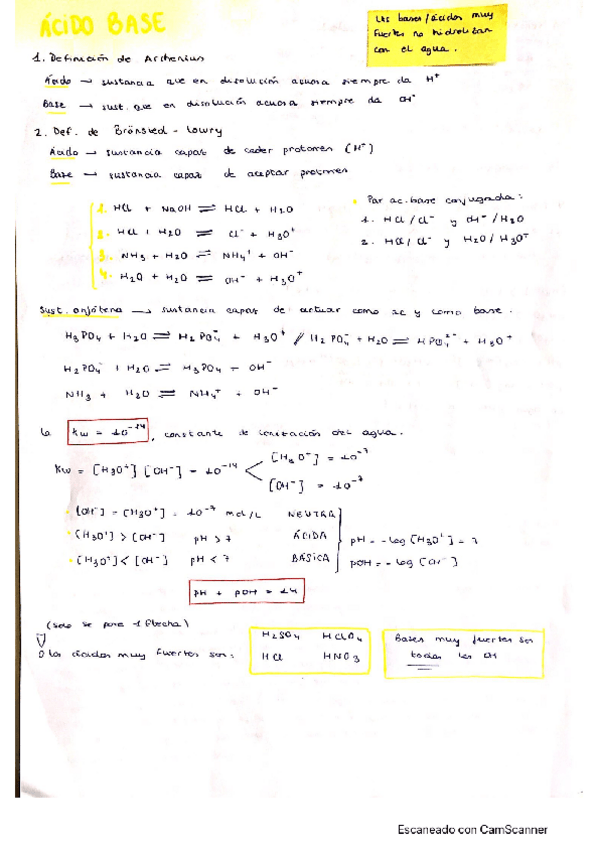 ÁCIDO BASE
Las bases/ácidos muy
fuertes no hidrolizan
con el agua.
1. Definición de Arrhenius
Ácido → sustancia que en disolución acuosa siempre da H⁺
Base → sust. que en disolución acuosa siempre da OH⁻
2. Def. de Brönsted - Lowry
Ácido → sustancia capaz de ceder protones (H⁺)
Base → sustancia capaz de aceptar protones
1. HCl + NaOH ⇌ HCl + H2O
2. HCl + H2O ⇌ Cl⁻ + H3O⁺
3. NH3 + H2O ⇌ NH4⁺ + OH⁻
4. H2O + H2O ⇌ OH⁻ + H3O⁺
Par ac. base conjugada:
1. HCl / Cl⁻ y OH⁻ / H2O
2. HCl / Cl⁻ y H2O / H3O⁺
Sust. anfótera → sustancia capaz de actuar como ac y como base.
H3PO4 + H2O ⇌ H2PO4⁻ + H3O⁺ // H2PO4⁻ + H2O ⇌ HPO4²⁻ + H3O⁺
H2PO4⁻ + H2O ⇌ H3PO4 + OH⁻
NH3 + H2O ⇌ NH4⁺ + OH⁻
La Kw = 10⁻¹⁴, constante de ionización del agua.
Kw = [H3O⁺] [OH⁻] = 10⁻¹⁴ < [H3O⁺] = 10⁻⁷
[OH⁻] = 10⁻⁷
[OH⁻] = [H3O⁺] = 10⁻⁷ mol/L NEUTRA
[H3O⁺] > [OH⁻] pH > 7 ÁCIDA
[H3O⁺] < [OH⁻] pH < 7 BÁSICA
pH = -log [H3O⁺] = 7
pOH = -log [OH⁻]
pH + pOH = 14
(solo se pone 1 flecha)
Los ácidos muy fuertes son:
H2SO4 HClO4
HCl HNO3
Bases muy fuertes son
todas las OH
Escaneado con CamScanner